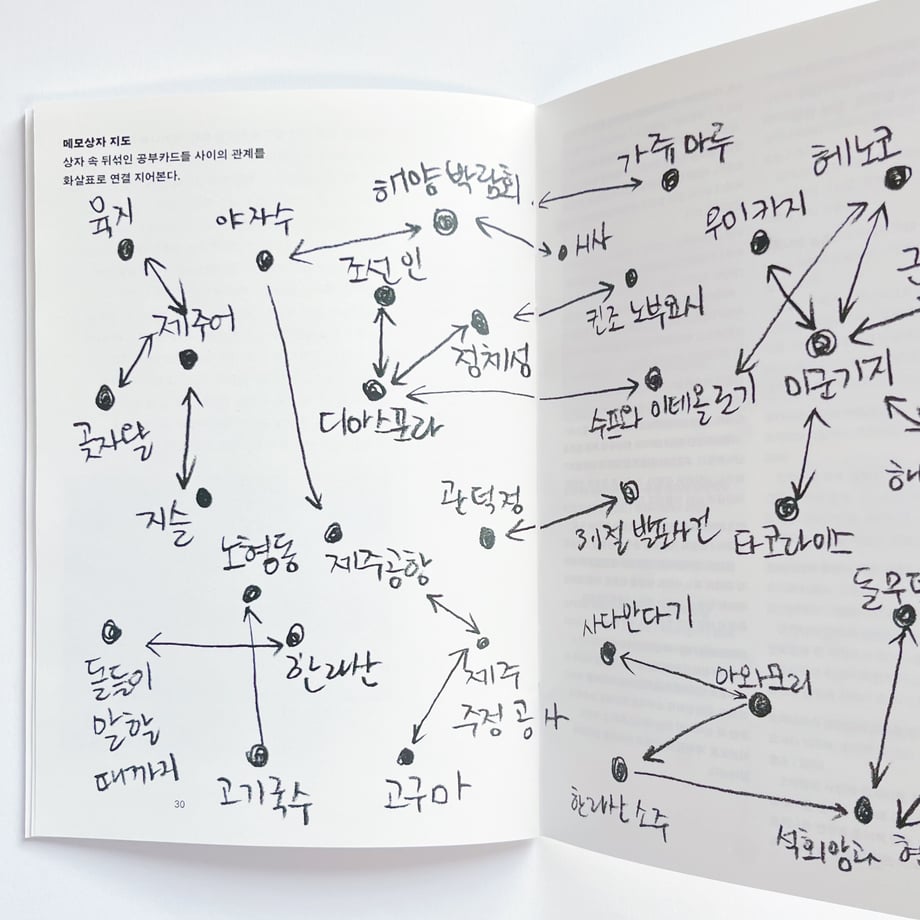 메모상자 지도
상자 속 뒤섞인 공부카드들 사이의 관계를
화살표로 연결 지어본다.
뭍지
야자수
해양 박람회
조선인
제주어
정체성
곶자왈
디아스포라
지슬
노형동
제주공항
관덕정
돌들이
말할
때까지
한라산
제주
주정 공사
고기국수
고구마
30
가쥬마루
헤노코
우미카지
킨조 노부요시
수프와 이데올로기
미군기지
3·1절 발포사건
타코라이스
사타안다기
아와모리
한라산 소주